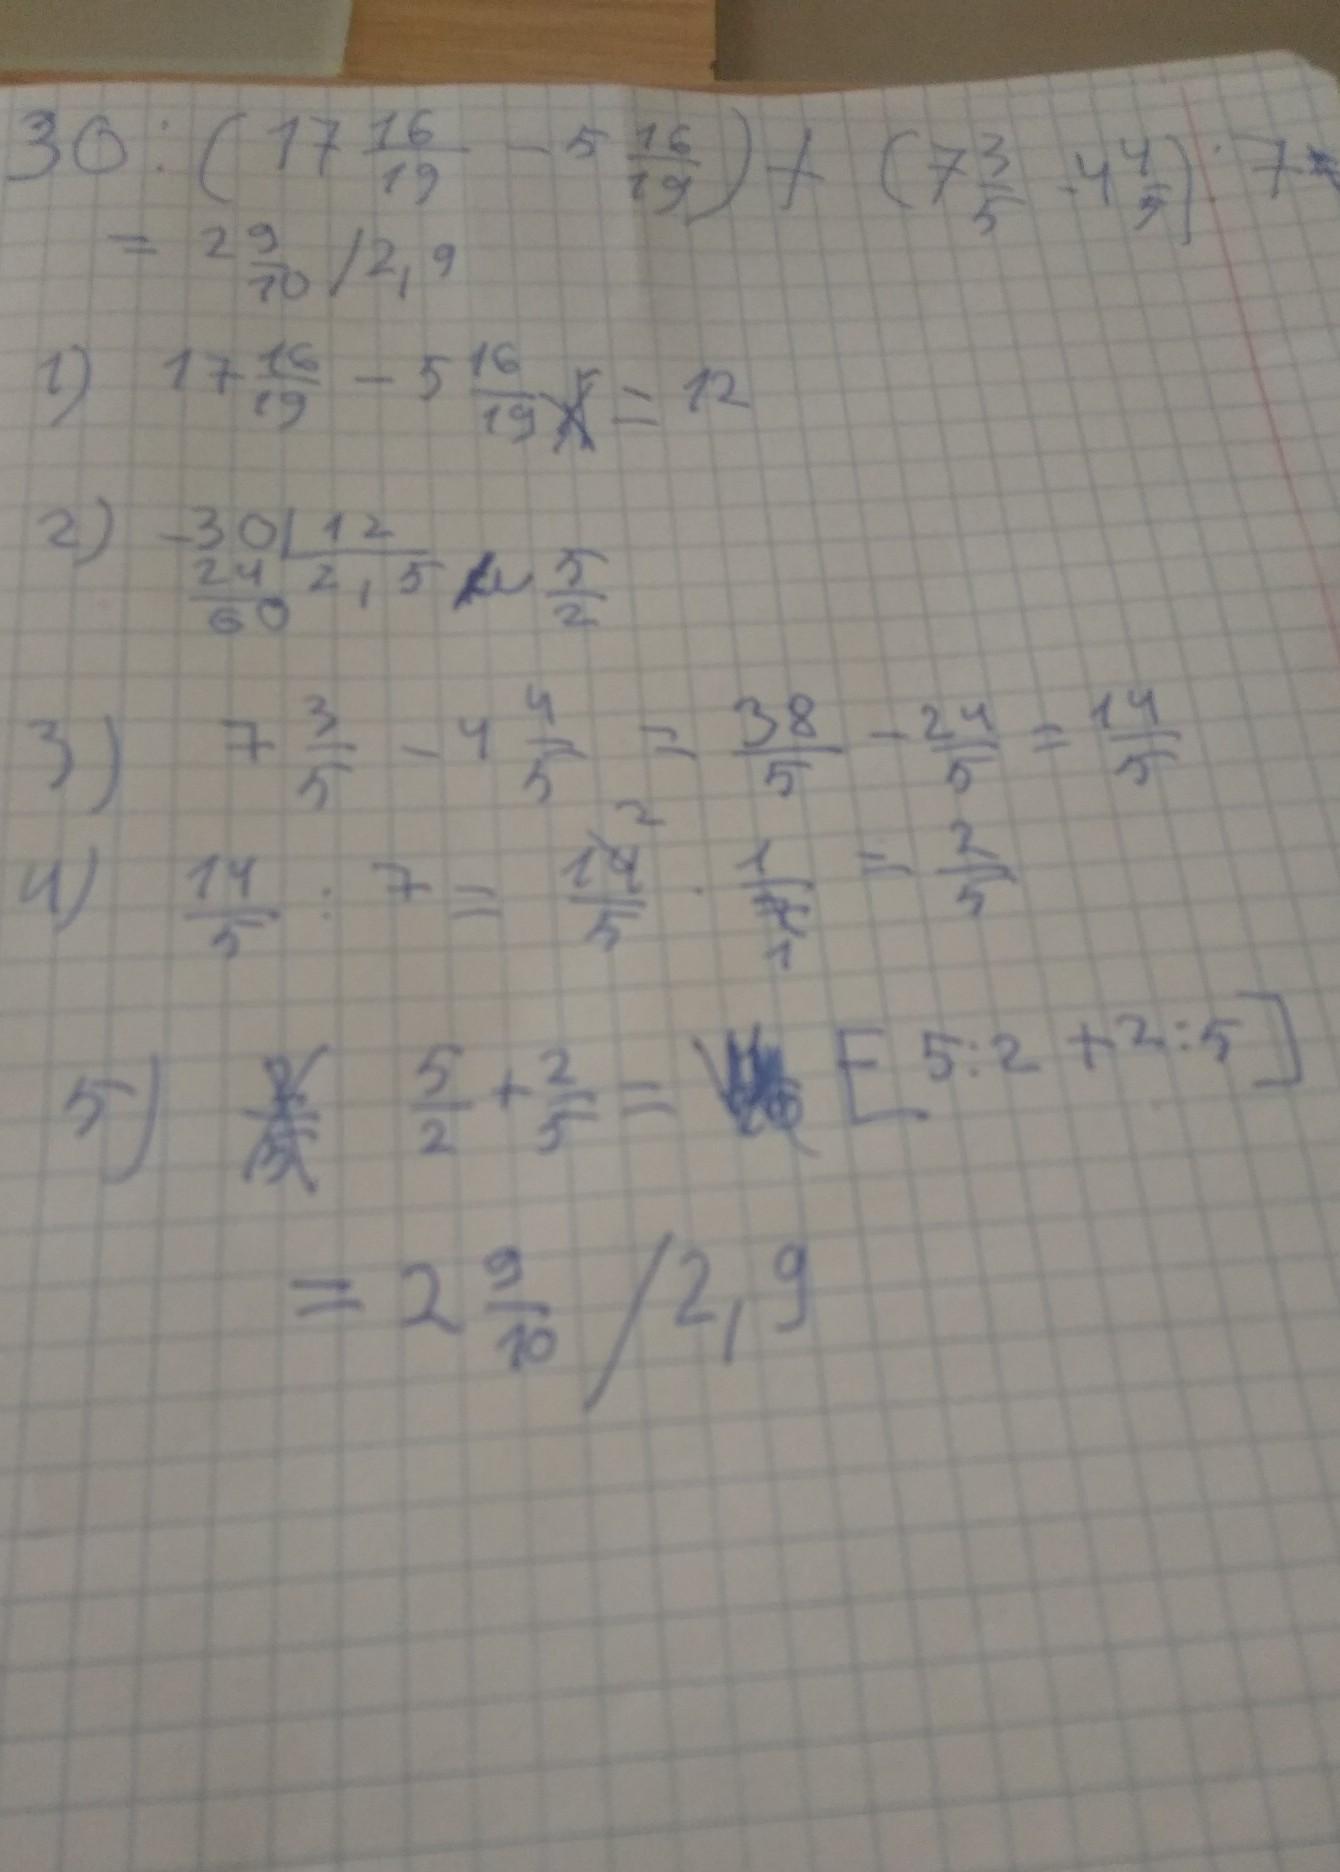 30 : (17 16/19 - 5 16/19) + (7 3/5 - 4 4/5) : 7 =
= 2 9/10 / 2,9
1) 17 16/19 - 5 16/19 = 12
2) -30 | 12
24 2,5 или 5/2
60
3) 7 3/5 - 4 4/5 = 38/5 - 24/5 = 14/5
4) 14/5 : 7 = 14/5 · 1/7 = 2/5
2
1
5) 5/2 + 2/5 = [5:2 + 2:5]
= 2 9/10 / 2,9